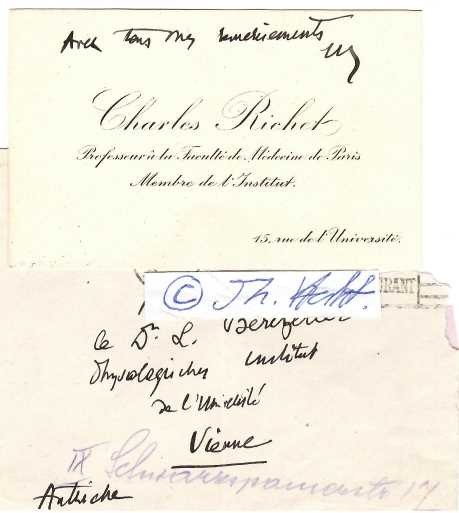 Avec tous mes remerciements
Charles Richet
Professeur à la Faculté de Médecine de Paris
Membre de l'Institut.
15, rue de l'Université.
© Th.
RANT
le Dr. L.
Physologisches Institut
de l'Université
Vienne
IX Schwarzspanierstr 17
Autriche